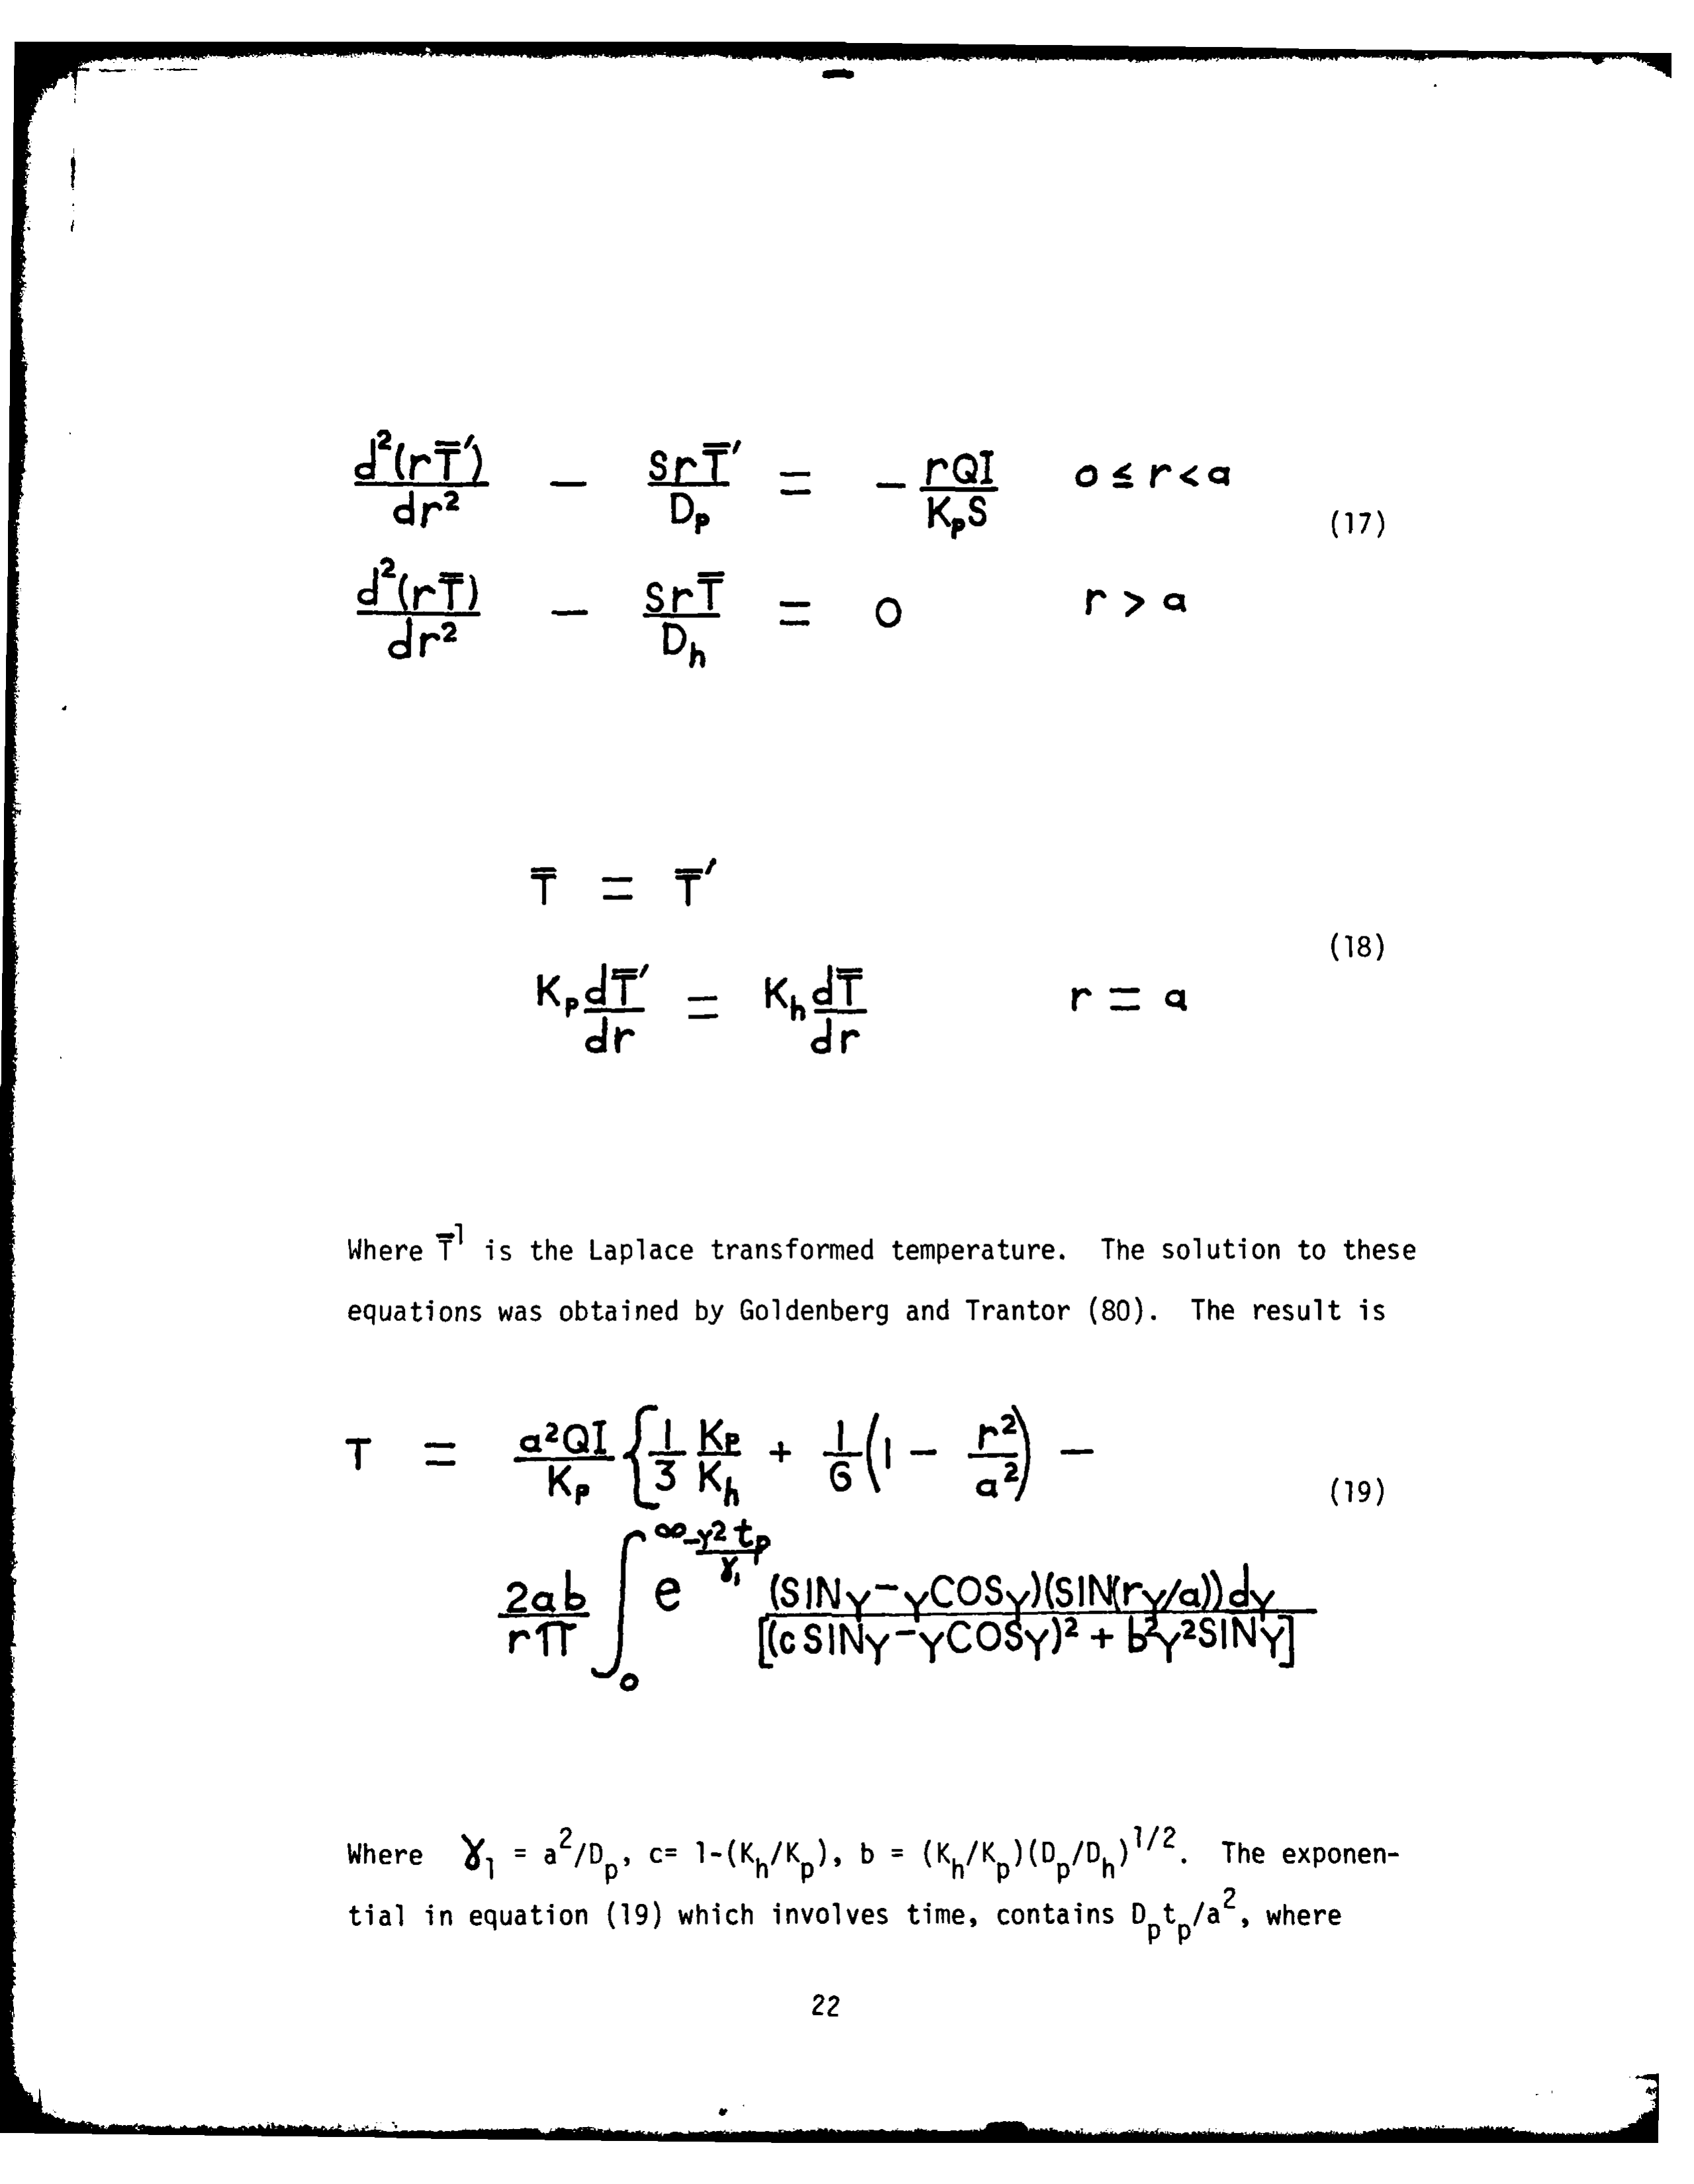 d²(rT̿′)/dr² − SrT̿′/D_p = − rQI/K_pS   o ≤ r < a
(17)
d²(rT̿)/dr² − SrT̿/D_h = 0   r > a
T̿ = T̿′
(18)
K_p dT̿′/dr = K_h dT̿/dr   r = a
Where T̿¹ is the Laplace transformed temperature. The solution to these
equations was obtained by Goldenberg and Trantor (80). The result is
T = a²QI/K_p {1/3 K_p/K_h + 1/6 (1 − r²/a²) −
(19)
2ab/rπ ∫₀^∞ e^(−y²t_p/γ₁) (SINy−yCOSy)(SIN(ry/a))dy/[(cSINy−yCOSy)² + b²y²SINy]
Where γ₁ = a²/D_p, c= 1-(K_h/K_p), b = (K_h/K_p)(D_p/D_h)^1/2. The exponen-
tial in equation (19) which involves time, contains D_pt_p/a², where
22